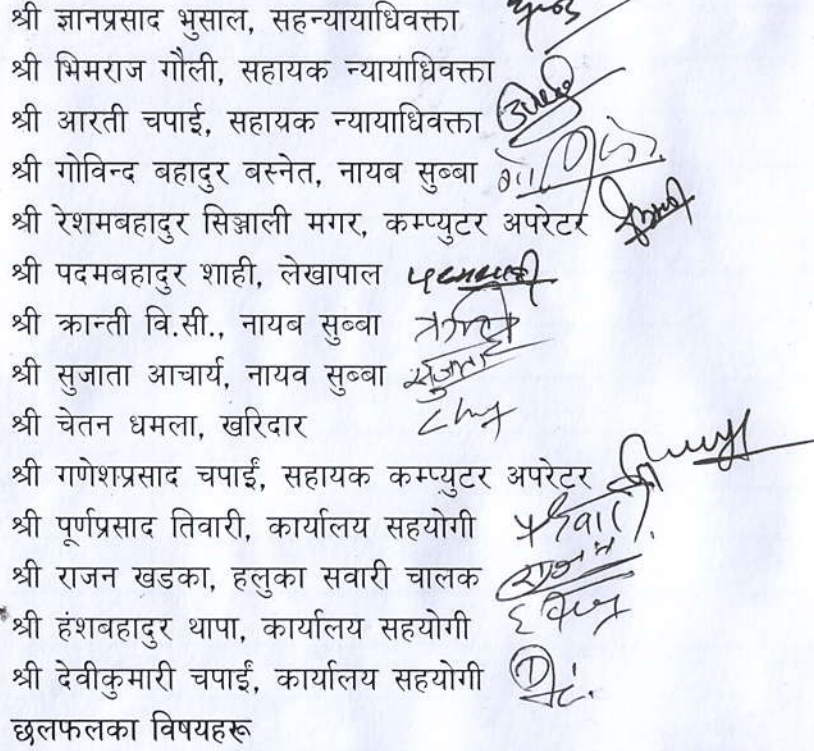 श्री ज्ञानप्रसाद भुसाल, सहन्यायाधिवक्ता
श्री भिमराज गौली, सहायक न्यायाधिवक्ता
श्री आरती चपाई, सहायक न्यायाधिवक्ता
श्री गोविन्द बहादुर बस्नेत, नायब सुब्बा
श्री रेशमबहादुर सिञ्जाली मगर, कम्प्युटर अपरेटर
श्री पदमबहादुर शाही, लेखापाल
श्री क्रान्ती वि.सी., नायब सुब्बा
श्री सुजाता आचार्य, नायव सुब्बा सुजाता
श्री चेतन धमला, खरिदार
श्री गणेशप्रसाद चपाईं, सहायक कम्प्युटर अपरेटर
श्री पूर्णप्रसाद तिवारी, कार्यालय सहयोगी
श्री राजन खडका, हलुका सवारी चालक राजन
श्री हंशबहादुर थापा, कार्यालय सहयोगी
श्री देवीकुमारी चपाईं, कार्यालय सहयोगी
छलफलका विषयहरू